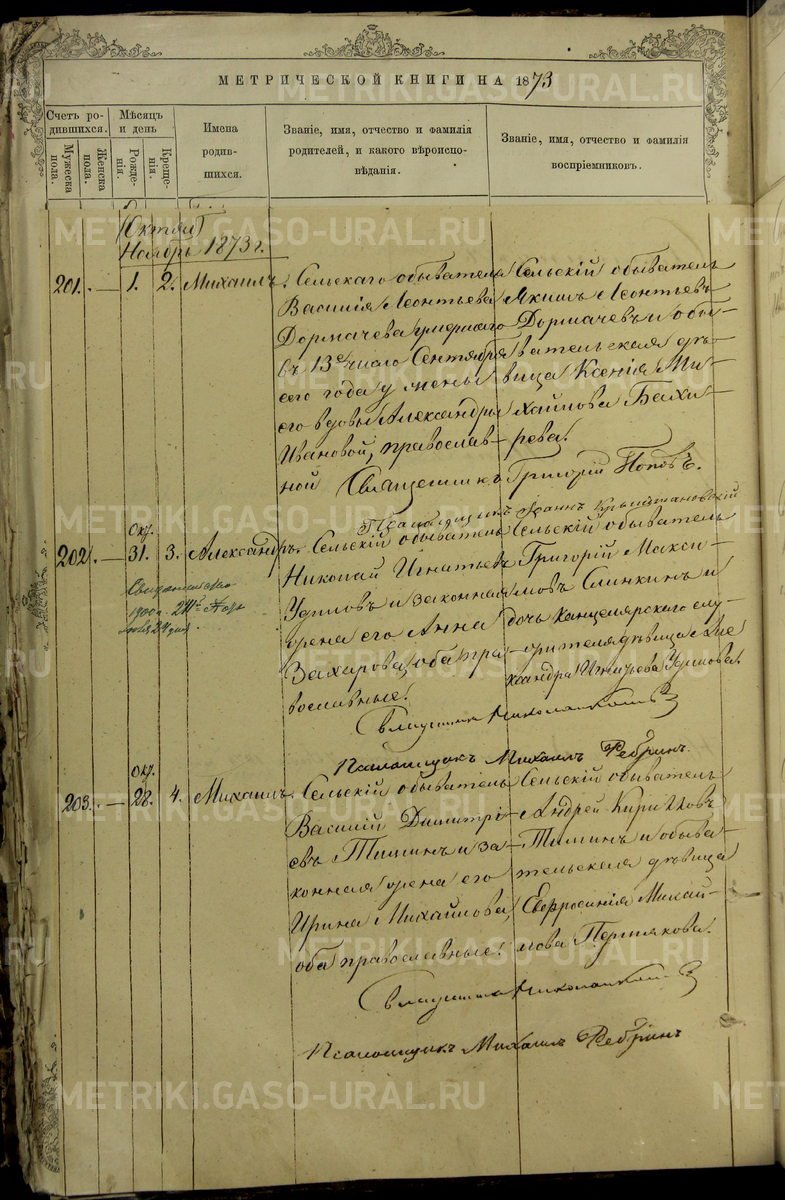 МЕТРИЧЕСКОЙ КНИГИ НА 1873
Счетъ родившихся.
Мужеска пола.
Женска пола.
Мѣсяцъ и день
Рожденія.
Крещенія.
Имена родившихся.
Званіе, имя, отчество и фамилія родителей, и какого вѣроисповѣданія.
Званіе, имя, отчество и фамилія воспріемниковъ.
Ноябрь 1873 г.
201. — 1. 2. Михаилъ.
Сельскаго обывателя
Василія Леонтьева
Дормачева умершаго
въ 13е число Сентября
сего года у жены
его вдовы Александры
Ивановой, православ-
ной
Сельскій обыватель
Якимъ Леонтьевъ
Дормачевъ и обы-
вательская дѣ-
вица Ксенія Ми-
хайлова Бахи-
рева.
Священникъ Григорій Поповъ.
202. — Окт. 31. 3. Александръ.
Сельскій обыватель
Николай Игнатьевъ
Удиловъ и законная
жена его Анна
Захарова, оба пра-
вославные.
Сельскій обыватель
Григорій Макси-
мовъ Слинкинъ и
дочь Канцелярскаго слу-
жителя дѣвица Але-
ксандра Игнатьева Удилова.
Псаломщикъ Михаилъ Ребринъ.
203. — Окт. 28. 4. Михаилъ.
Сельскій обыватель
Василій Димитрі-
евъ Тиминъ и за-
конная жена его
Ирина Михайлова,
оба православные.
Сельскій обыватель
Андрей Кириловъ
Тиминъ и обыва-
тельская дѣвица
Евфросинія Михай-
лова Пермякова.
Псаломщикъ Михаилъ Ребринъ
METRIKI.GASO-URAL.RU